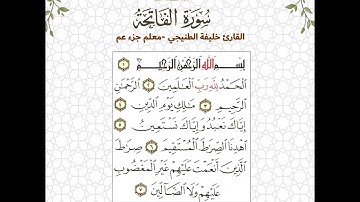 سُورَةُ الْفَاتِحَةِ
القارئ خليفة الطنيجي -معلم جزء عم
بِسْمِ اللَّهِ الرَّحْمَٰنِ الرَّحِيمِ ١
الْحَمْدُ لِلَّهِ رَبِّ الْعَالَمِينَ ٢ الرَّحْمَٰنِ
الرَّحِيمِ ٣ مَالِكِ يَوْمِ الدِّينِ ٤
إِيَّاكَ نَعْبُدُ وَإِيَّاكَ نَسْتَعِينُ ٥
اهْدِنَا الصِّرَاطَ الْمُسْتَقِيمَ ٦ صِرَاطَ
الَّذِينَ أَنْعَمْتَ عَلَيْهِمْ غَيْرِ الْمَغْضُوبِ
عَلَيْهِمْ وَلَا الضَّالِّينَ ٧